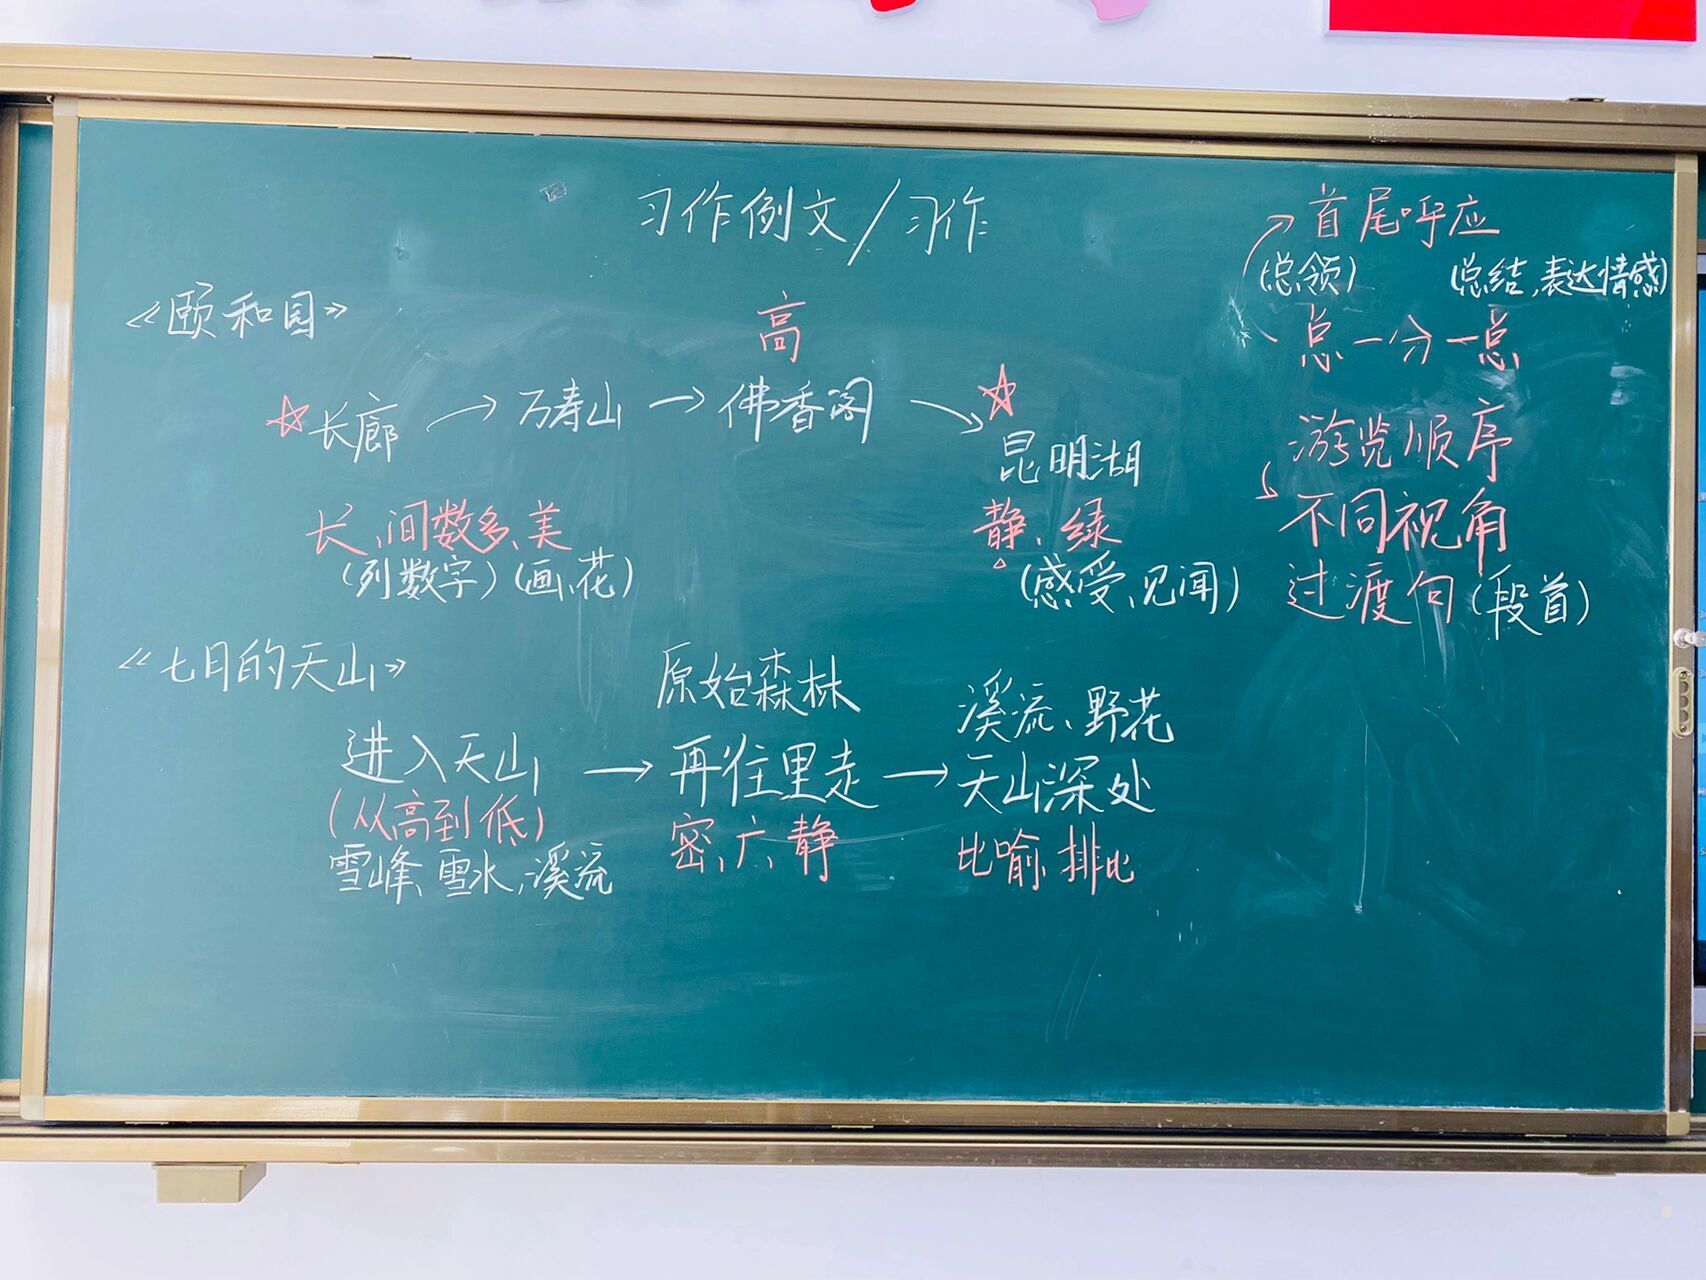 习作例文/习作
《颐和园》
高
长廊→万寿山→佛香阁→昆明湖
长、间数多、美
(列数字)(画、花)
静、绿
(感受、见闻)
《七月的天山》
原始森林
溪流、野花
进入天山→再往里走→天山深处
(从高到低)
密、广、静
比喻、排比
雪峰、雪水、溪流
首尾呼应
(总领) (总结,表达情感)
总一分一总
游览顺序
不同视角
过渡句(段首)